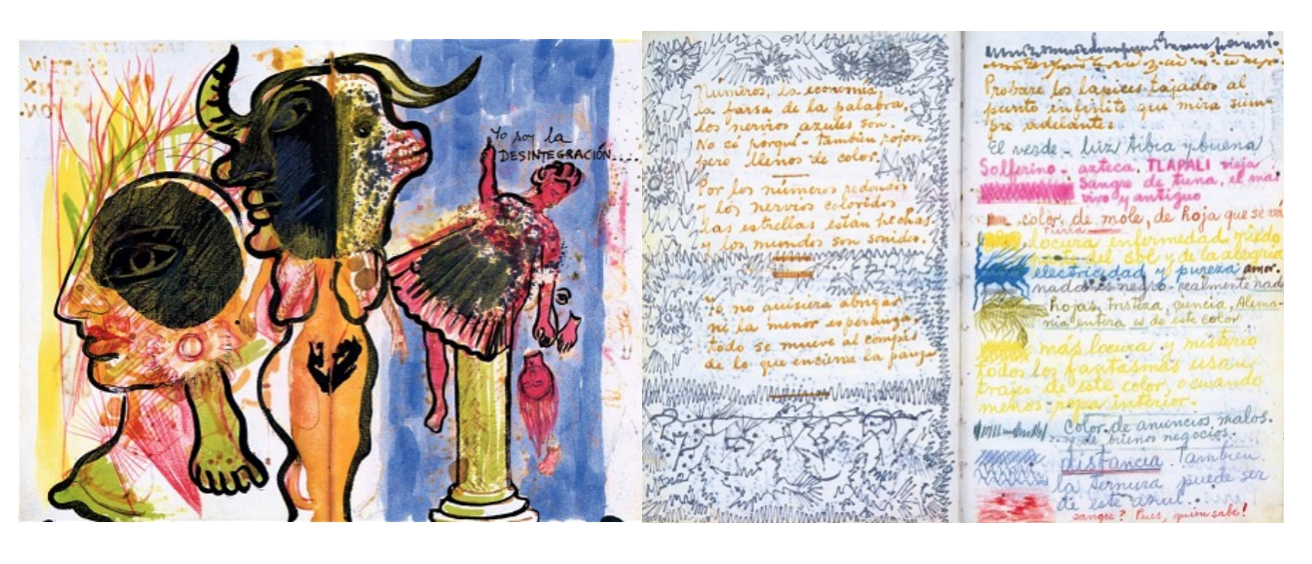 Yo soy la
DESINTEGRACIÓN....
Números, la economía,
la farsa de la palabra,
los nervios azules son.
No cé porqué - también rojos,
pero llenos de color.
Por los números redondos
y los nervios coloridos
las estrellas están hechas
y los mundos son sonidos.
Yo no quisiera abrigar
ni la menor esperanza,
todo se mueve al compás
de lo que encierra la panza
Probaré los lápices tajados al
punto infinito que mira siem-
pre adelante:
El verde - luz tibia y buena
Solferino - azteca. TLAPALI vieja
sangre de tuna, el más
vivo y antiguo
color de mole, de hoja que se va
tierra
locura enfermedad miedo
parte del sol y de la alegría
electricidad y pureza amor.
nada es negro - realmente nada
hojas, tristeza, ciencia, Alema-
nia entera es de este color
más locura y misterio
todos los fantasmas usan
trajes de este color, o cuando
menos ropa interior.
color de anuncios malos.
y de buenos negocios.
distancia. También
la ternura puede ser
de este azul.
sangre? Pues, quién sabe!